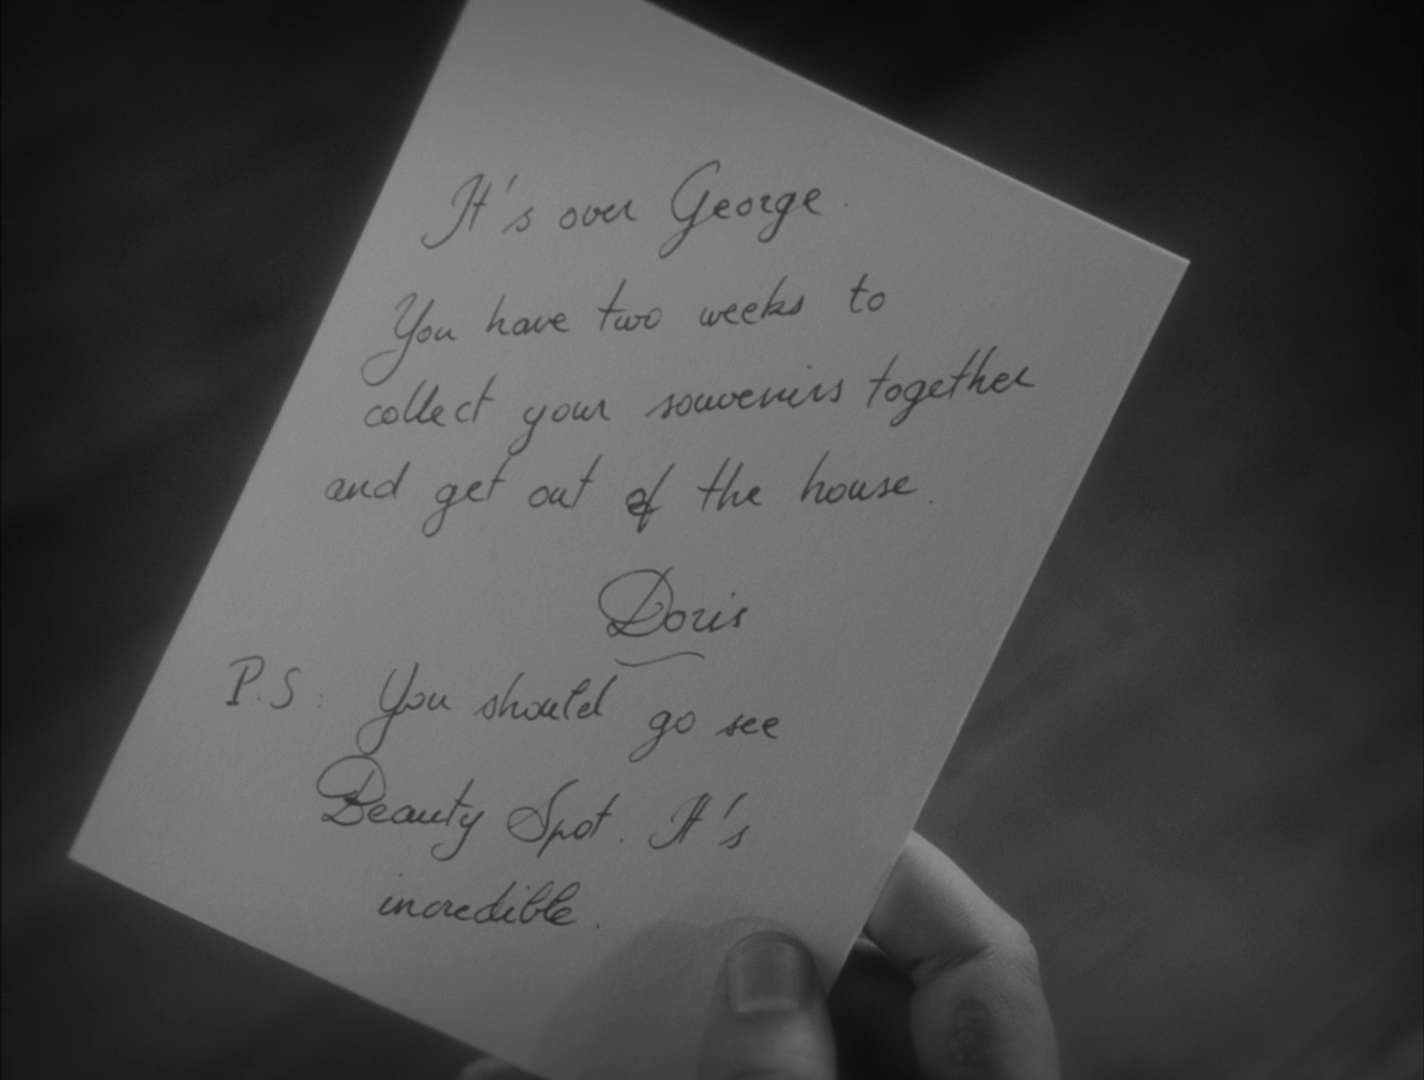 It's over George.
You have two weeks to
collect your souvenirs together
and get out of the house.
Doris
P.S: You should go see
Beauty Spot. It's
incredible.